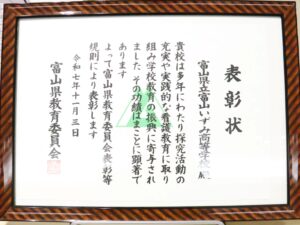 表彰状
富山県立富山いずみ高等学校殿
貴校は多年にわたり探究活動の
充実や実践的な看護教育に取り
組み学校教育の振興に寄与され
ました その功績はまことに顕著で
あります
よって富山県教育委員会表彰等
規則により表彰します
令和七年十一月三日
富山県教育委員会